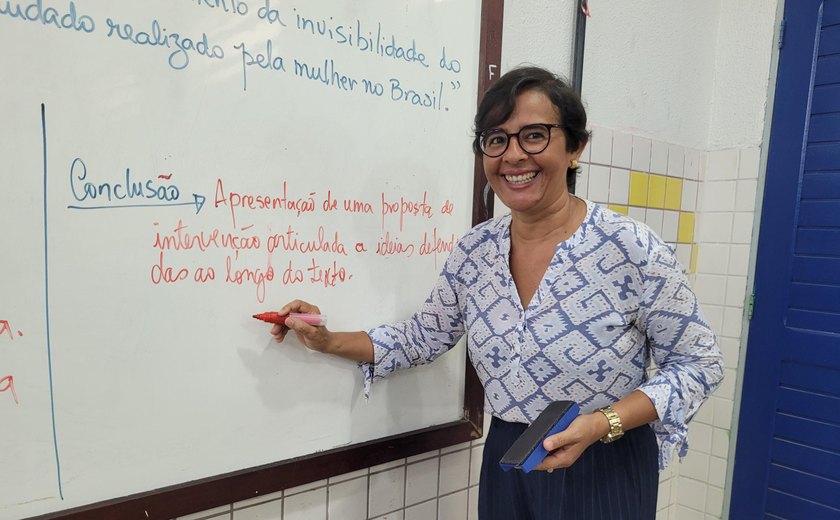 ento da invisibilidade do
cuidado realizado pela mulher no Brasil."
Conclusão → Apresentação de uma proposta de
intervenção articulada a ideias defendi
das ao longo do texto.
a.
a
F